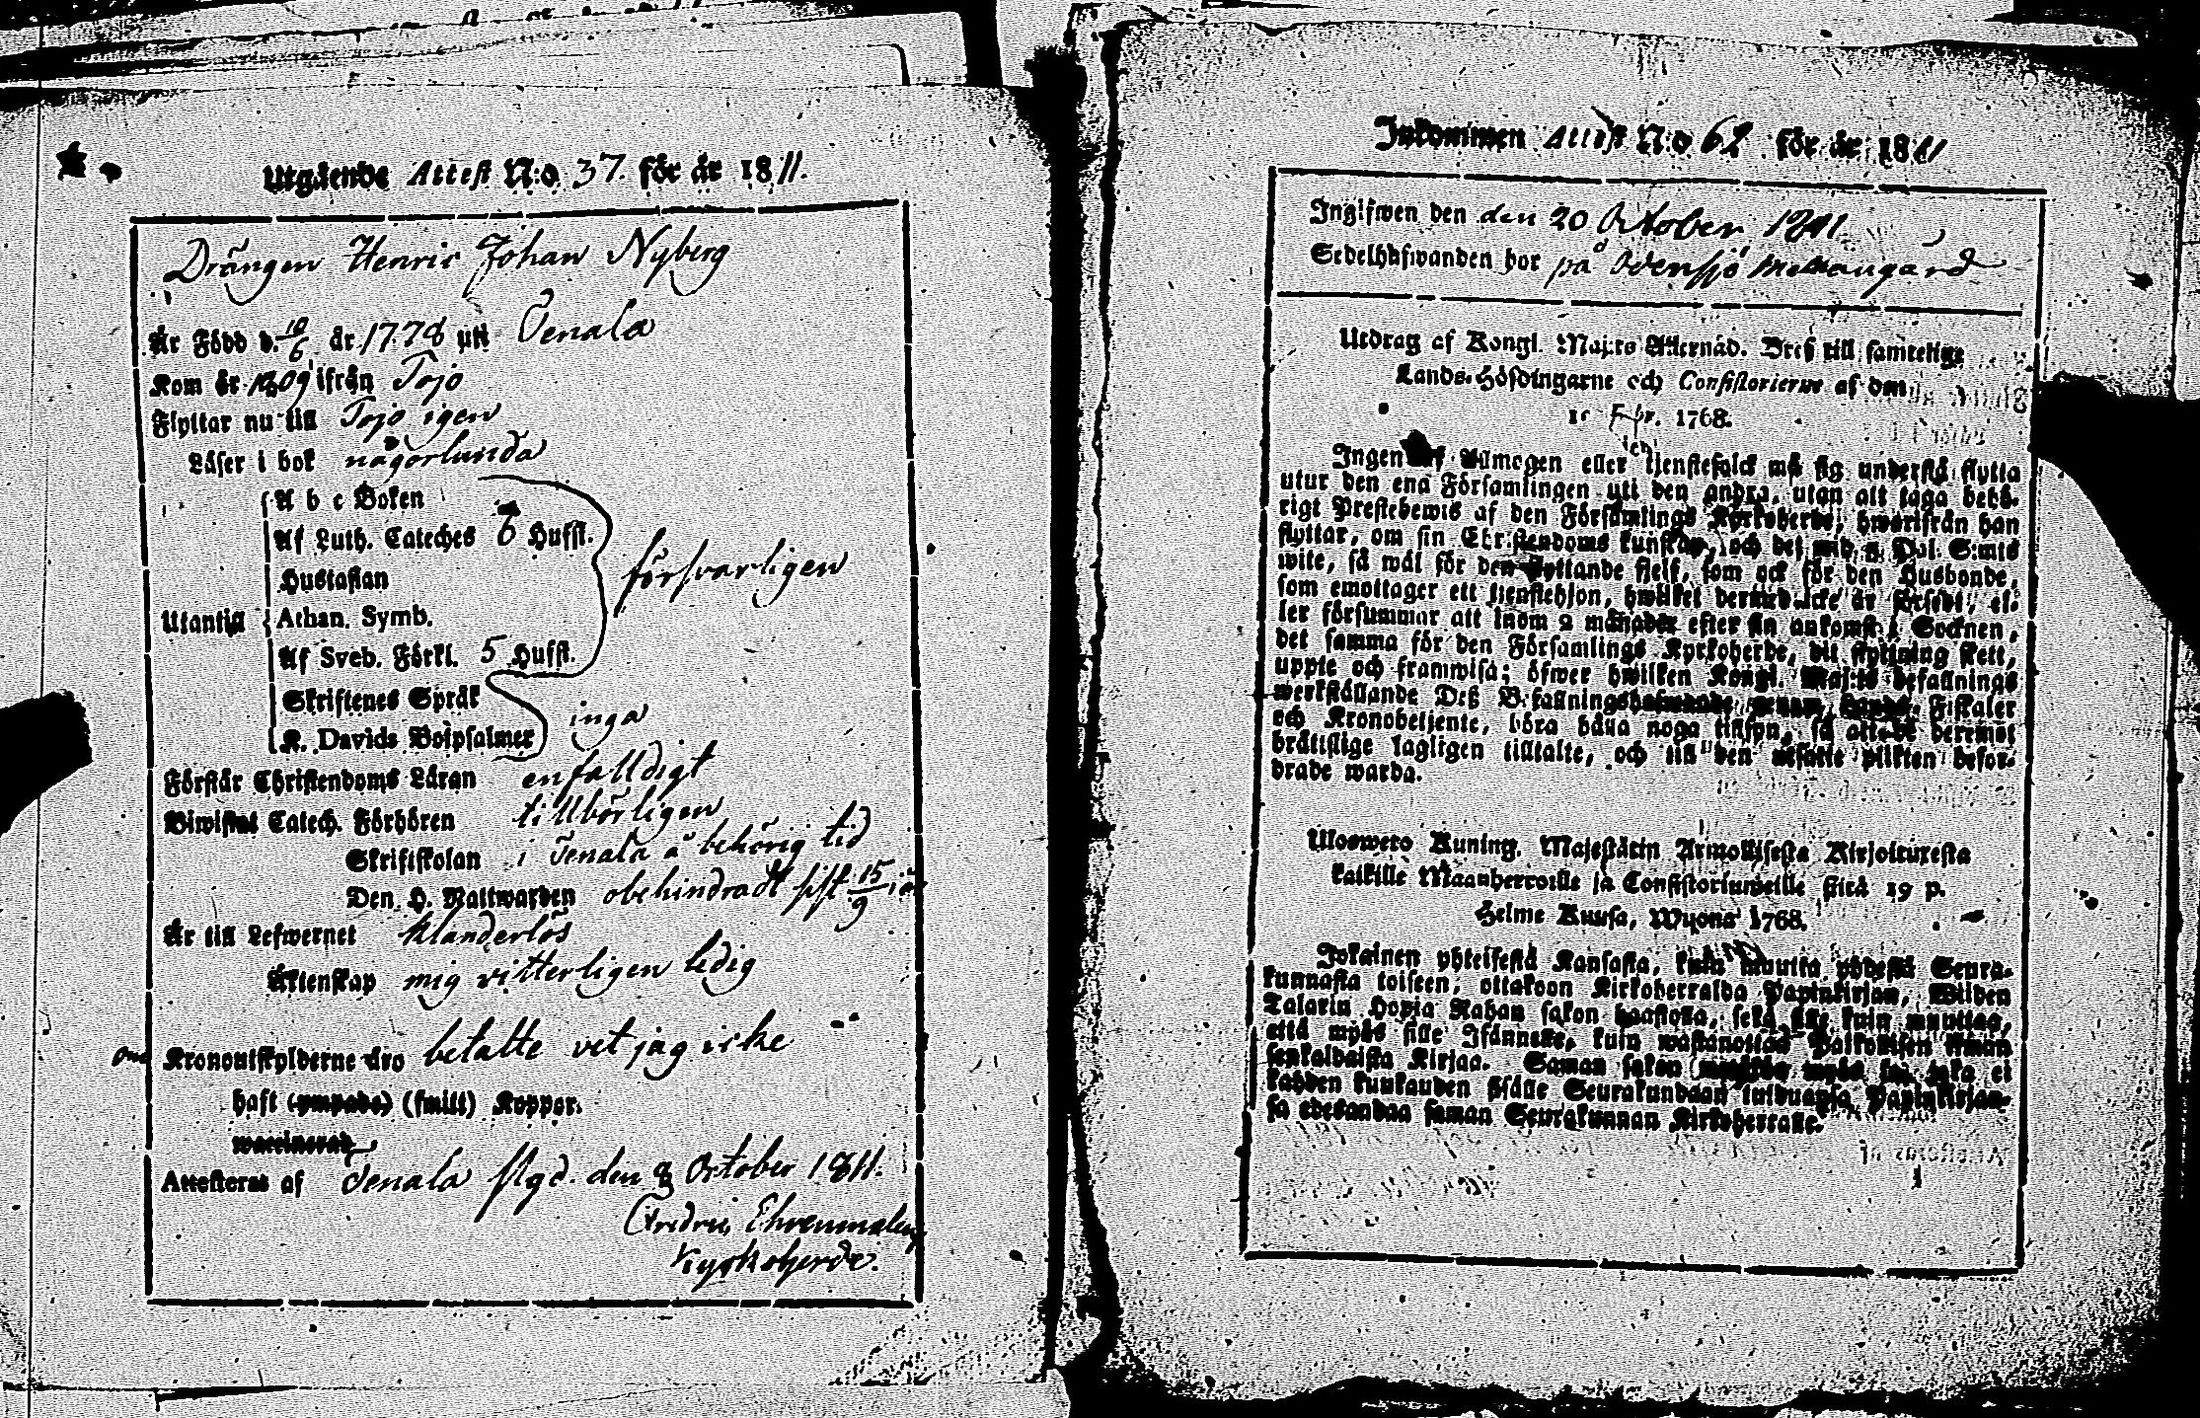 Utgående Attest N:o 37. för år 1811.
Drängen Henric Johan Nyberg
Är Född d. 10/6 år 1778 uti Tenala
Kom år 1809 ifrån Tojo
Flyttar nu till Tojo igen
Läser i bok någorlunda
A b c Boken
Af Luth. Cateches 6 Hufst.
försvarligen
Hustaflan
Utantill Athan. Symb.
Af Sveb. Förkl. 5 Hufst.
Skriftenes Språk
K. Davids Botpsalmer inga
Förstår Christendoms Läran enfalldigt
Biwistat Catech. Förhören tillbörligen
Skriftskolan i Tenala å behörig tid
Den H. Nattwarden obehindradt sist 15/9 i år
Är till Lefwernet klanderlös
Äktenskap mig vitterligen ledig
om Kronoutskylderne äro betalte vet jag icke
haft (ympade) (smitt) Koppor.
waccinerad
Attesteras af Tenala stgd. den 8 October 1811.
Fredric Ehrenmalm
Kyrkoherde.
Inkommen Attest N:o 62 för år 1811
Ingifwen den den 20 October 1811
Sedelhafwanden bor på Odensjö
Utdrag af Kongl. Maj:ts Allernåd. Bref till samtelige
Lands-Höfdingarne och Consistorierne af den
Febr. 1768.
Ingen af Allmogen eller tjenstefolck må sig understå flytta
utur den ena Församlingen uti den andra, utan att taga behö-
rigt Prestebewis af den Församlings Kyrkoherde, hwarifrån han
flyttar, om sin Christendoms kunskap, och det wid 2 Dal. S:mts
wite, så wäl för den flyttande sjelf, som ock för den Husbonde,
som emottager ett tjenstehjon, hwilket dermed icke är försedt, el-
ler försummar att inom 2 månader efter sin ankomst i Socknen,
det samma för den Församlings Kyrkoherde, dit flyttning skett,
uppte och framwisa; öfwer hwilken Kongl. Maj:ts befallnings
werkställande Deß Befallningshafwande genom Lands-Fiskaler
och Kronobetjente, böra hålla noga tillsyn, så att de deremot
bråttslige lagligen tilltalte, och till den utsatte plikten befor-
drade warda.
Uloswero Kuning. Majestätin Armollisesta Kirjoituxesta
kaikille Maanherroille ja Consistoriumeille siitä 19 p.
Helme Kuusa, Wuona 1768.
Jokainen yhteisestä Kansasta, kuin muutta yhdestä Seura-
kunnasta toiseen, ottakoon Kirkoherralda Papinkirjan, Wiiden
Talarin Hopia Rahan sakon haastolla, sekä sille kuin muuttaa,
että myös sille Isännälle, kuin wastanottaa Palkollisen ilman
senkaldaista Kirjaa. Saman sakon joka ei
kahden kuukauden sisälle Seurakundaan tulduansa Papinkirjan-
sa edesandaa saman Seurakunnan Kirkoherralle.